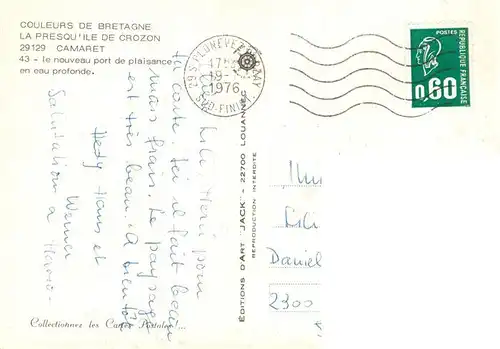 COULEURS DE BRETAGNE
LA PRESQU'ILE DE CROZON
29129 CAMARET
43 - le nouveau port de plaisance
en eau profonde.
29 S PLONEVEZ
17H
19-
1976
SUD-FIN
POSTES
REPUBLIQUE FRANÇAISE
0,60
Merci pour
ta carte. Ici il fait beau
mais frais. Le paysage
est très beau. A bientôt
Hedy Hans et
Werner
Salutation a
EDITIONS D'ART "JACK" - 22700 LOUANNEC
REPRODUCTION INTERDITE
Daniel
2300
Collectionnez les Cartes Postales!...